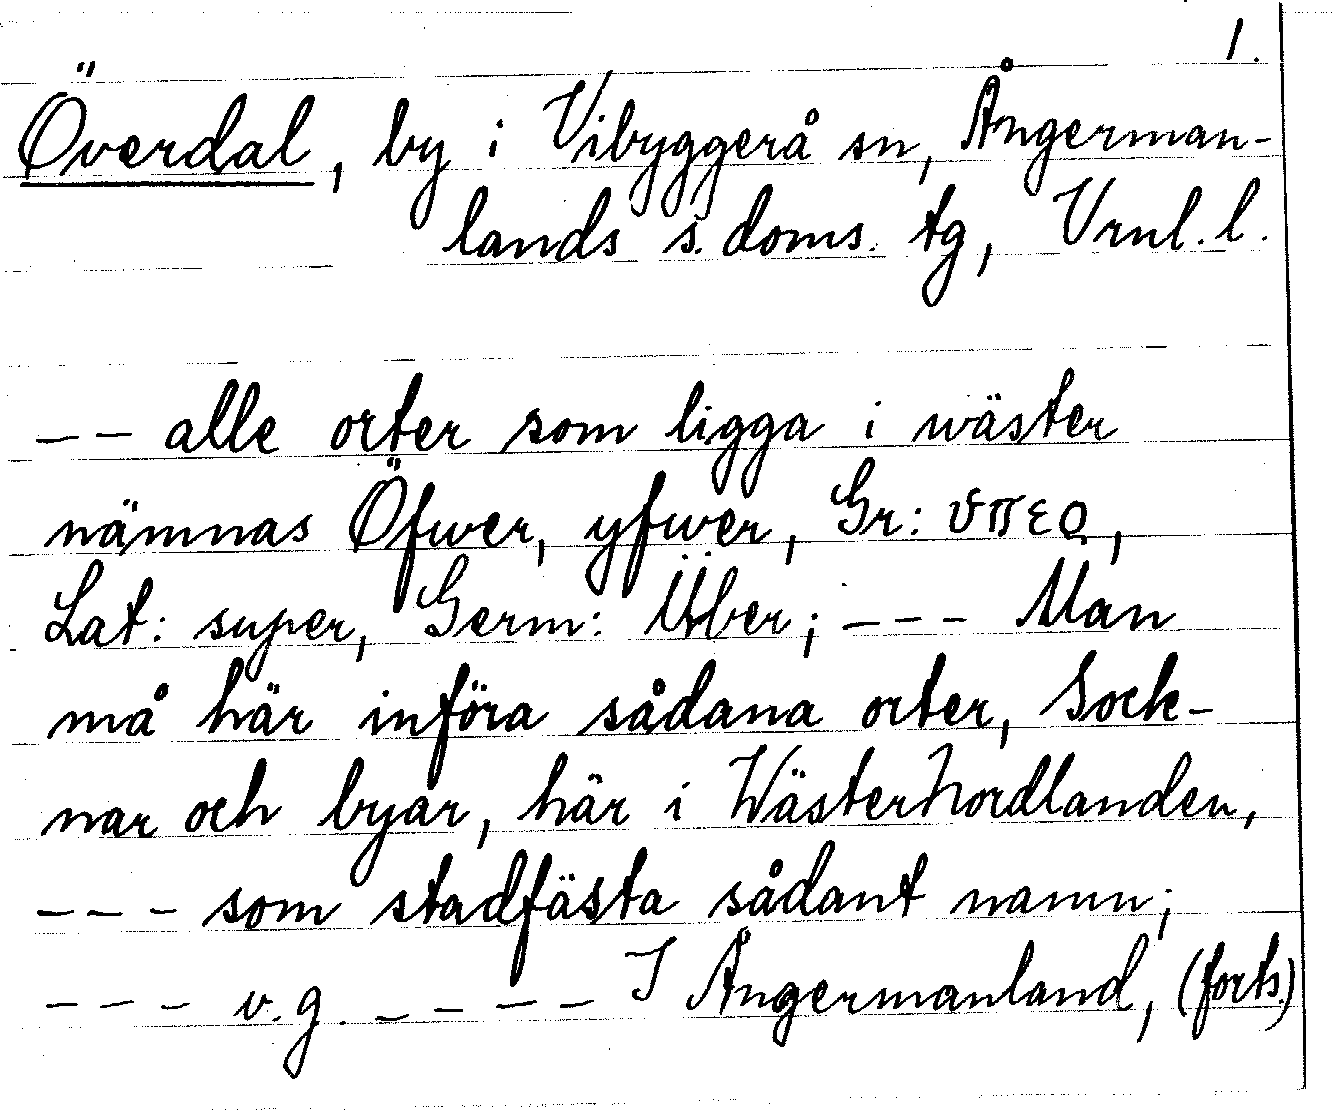 1.
Överdal, by i Vibyggerå sn, Ångerman-
lands s. doms. tg, Vrnl. l.
-- alle orter som ligga i wäster
nämnas Öfwer, yfwer, Gr: υπερ,
Lat: super, Germ: Über; --- Man
må här införa sådana orter, Sock-
nar och byar, här i WästerNordlanden,
--- som stadfästa sådant namn;
--- v.g. ---- I Ångermanland, (forts.)